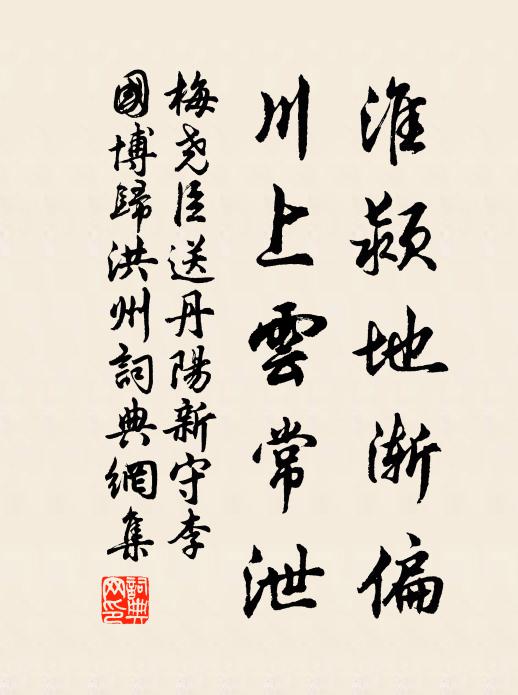 淮潁地漸偏
川上雲常泄
梅堯臣送丹陽新守李
國博歸洪州詞典網集
詞典
网印